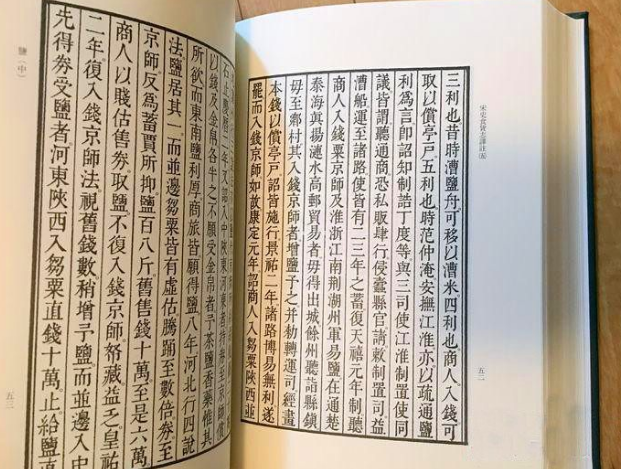 宋史食貨志譯註(五)
五二
三利也昔時漕鹽舟可移以漕米四利也商人入錢可
取以償亭戶五利也時范仲淹安撫江淮亦以疏通鹽
利爲言即詔知制誥丁度等與三司使江淮制置使同
議皆謂聽通商恐私販肆行侵蠹縣官請敕制置司益
漕船運至諸路使皆有二三年之蓄復天禧元年制聽
商人入錢粟京師及淮浙江南荊湖州軍易鹽在通楚
泰海眞揚漣水高郵貿易者毋得出城餘州聽詣縣鎭
毋至鄉村其入錢京師者增鹽予之并勑轉運司經畫
本錢以償亭戶詔皆施行景祐二年諸路博易無利遂
罷而入錢京師如故康定元年詔商人入芻粟陝西並
石止慶曆二年又詔入中陝東河東者持券至京師償
以錢及金帛各半之不願受金帛者予茶鹽香藥惟其
所欲而東南鹽利厚商旅皆願得鹽八年河北行四說
法鹽居其一而並邊芻粟皆有虛估騰踊至數倍券至
京師反爲蓄賈所抑鹽百八斤舊售錢十萬至是六萬
商人以賤估售券取鹽不復入錢京師帑藏益乏皇祐
二年復入錢京師法視舊錢數稍增予鹽而並邊入中
先得券受鹽者河東陝西入芻粟直錢十萬止給鹽直
鹽(中)
五三